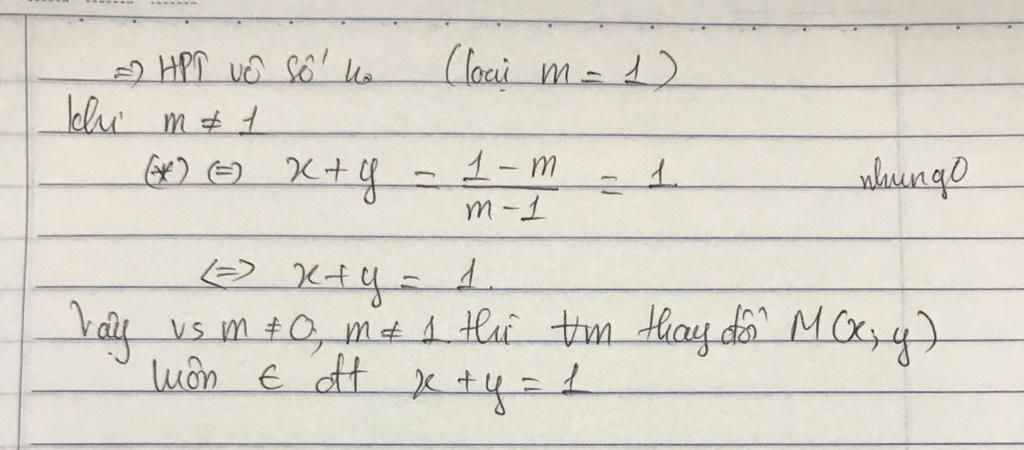 => HPT vô số n₀ (loại m = 1)
khi m ≠ 1
(*) <=> x + y = \frac{1 - m}{m - 1} = 1. nhung0
<=> x + y = 1.
Vậy vs m ≠ 0, m ≠ 1 thì ∀m thay đổi M(x; y)
luôn ∈ đt x + y = 1